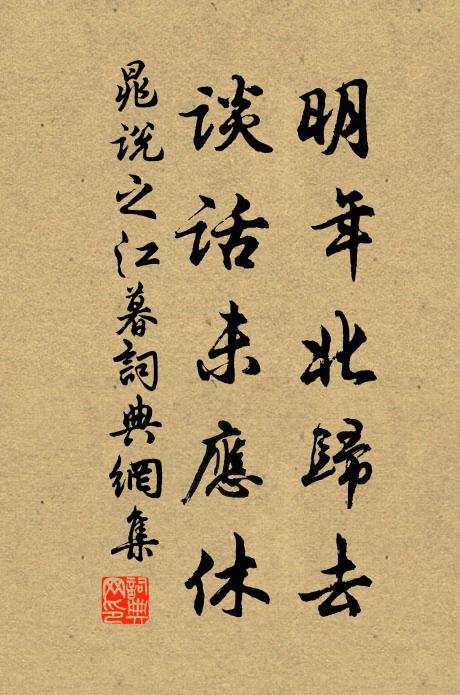 明年北歸去
談話未應休
晁説之江暮詞典網集
詞典網印